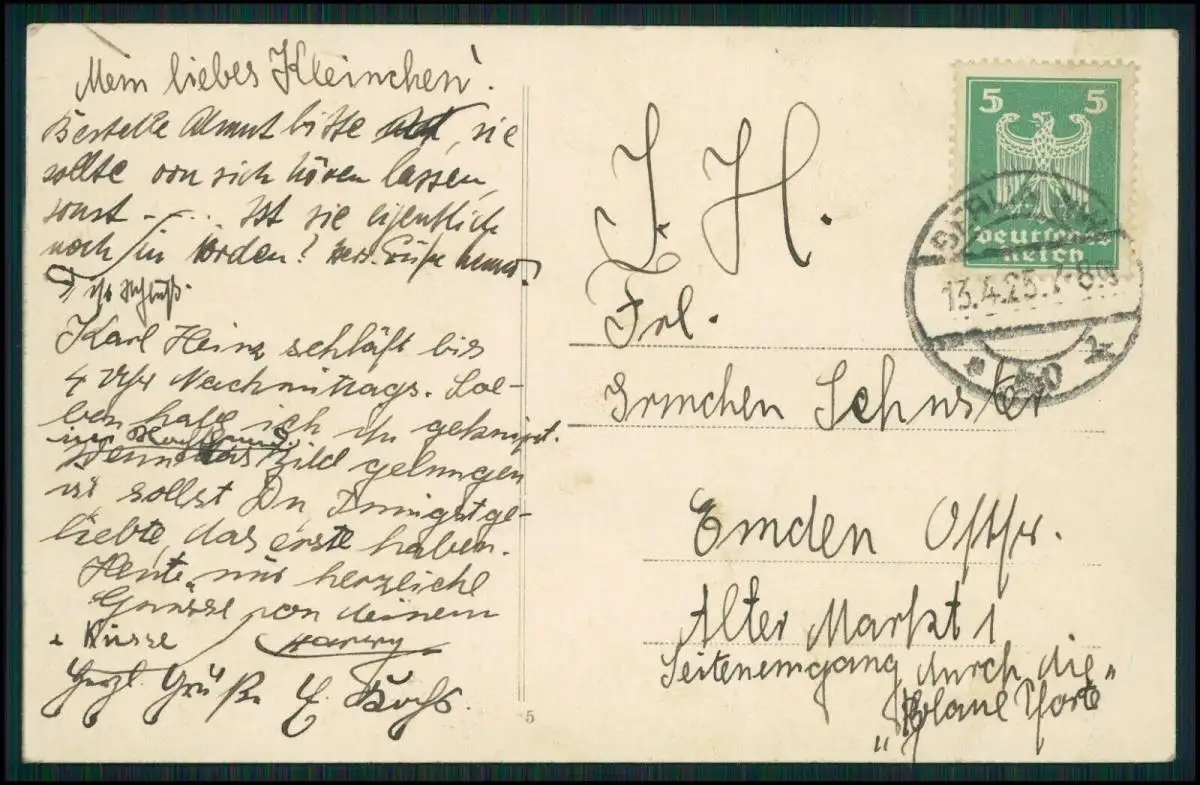 Mein liebes Kleinchen!
Bestelle Almut bitte, sie
sollte von sich hören lassen,
sonst - ... Ist sie eigentlich
noch in Norden? Herz. Grüße
Schluß.
Karl Heinz schläft bis
4 Uhr Nachmittags. Soe-
ben habe ich ihn geknipst.
Wenn das Bild gelungen
ist sollst Du, Innigstge-
liebte, das erste haben.
Heute nur herzliche
Grüsse von deinem
Küsse Harry
Herzl. Grüße
5
I. H.
Frl.
Irmchen Schuster
Emden Ostfr.
Alter Markt 1
Seiteneingang durch die
„Blaue Pforte"
5 5
Deutsches
Reich
BERLIN
13.4.25. 7-8